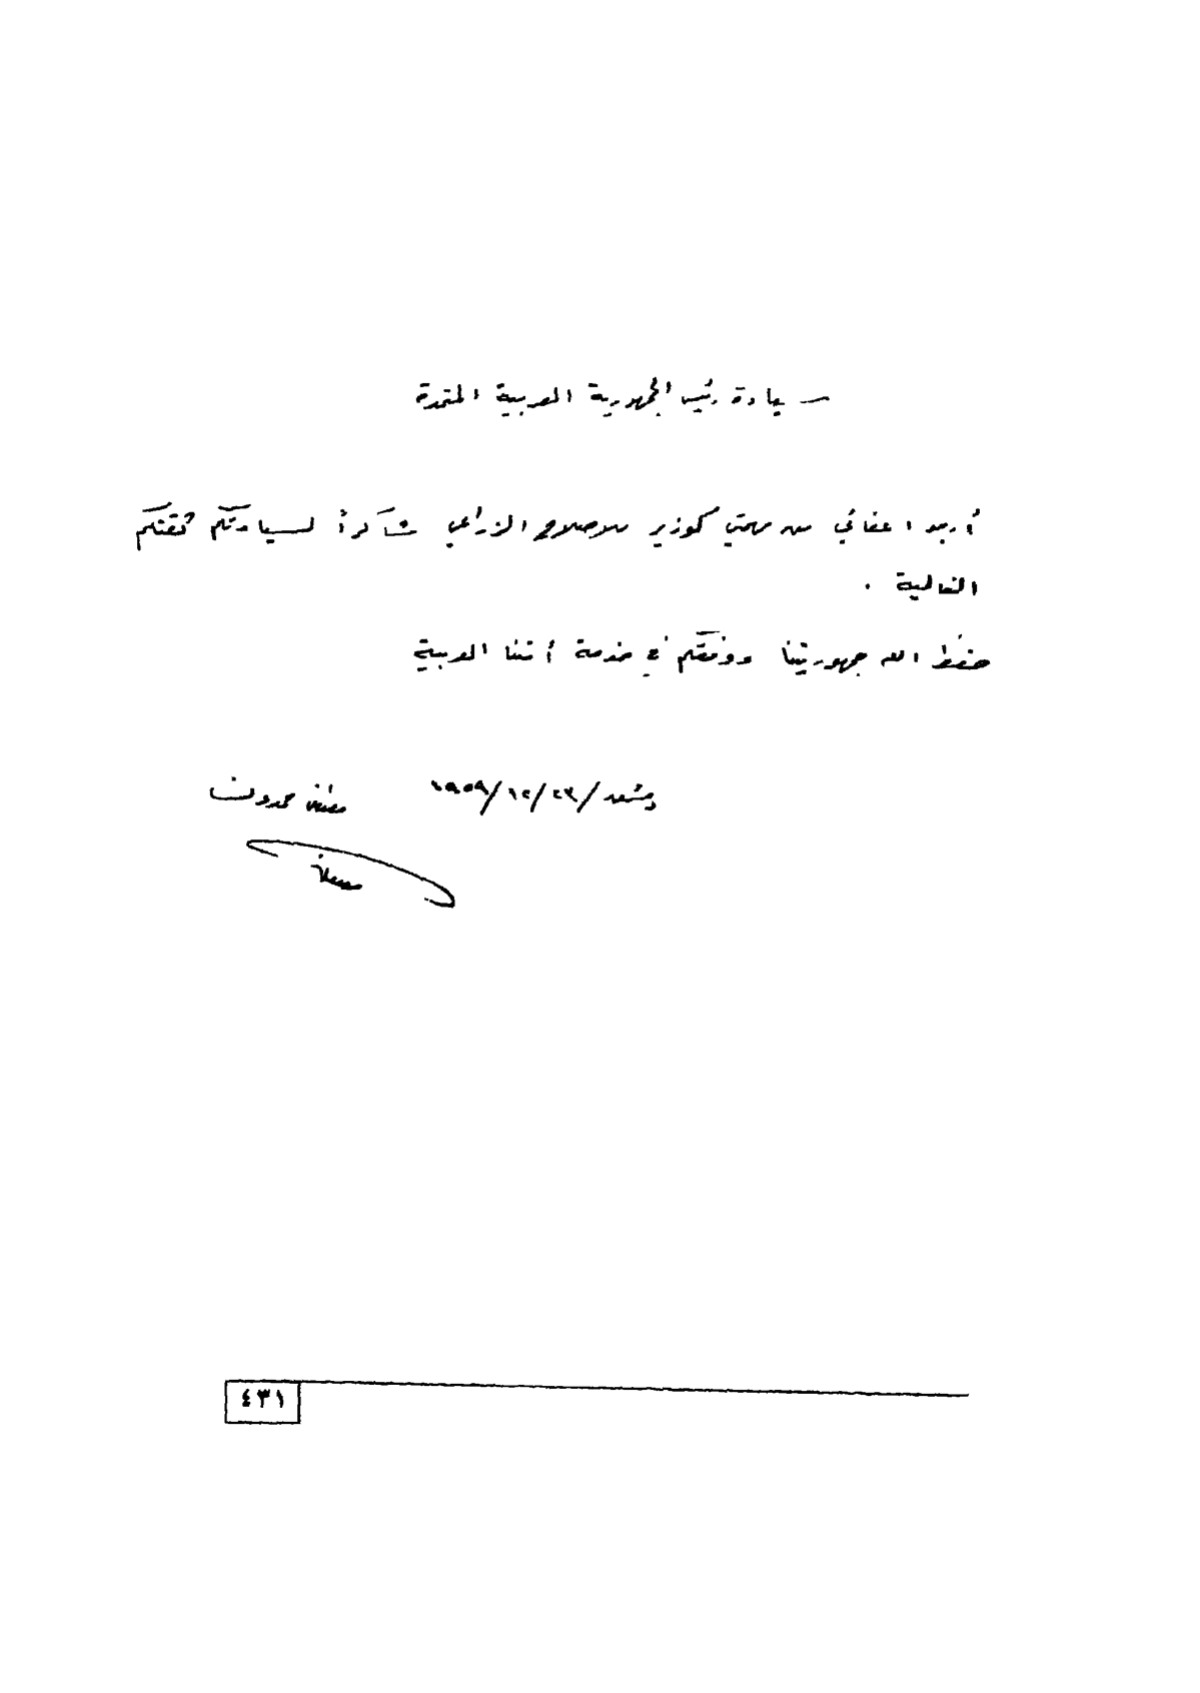 سيادة رئيس الجمهورية العربية المتحدة
أريد اعفائي من مهمتي كوزير للاصلاح الزراعي شاكراً لسيادتكم ثقتكم
الغالية .
حفظ الله جمهوريتنا ووفقكم في خدمة أمتنا العربية
دمشق / ٢٣ / ١٢ / ١٩٥٩ مصطفى حمدون
٤٣١